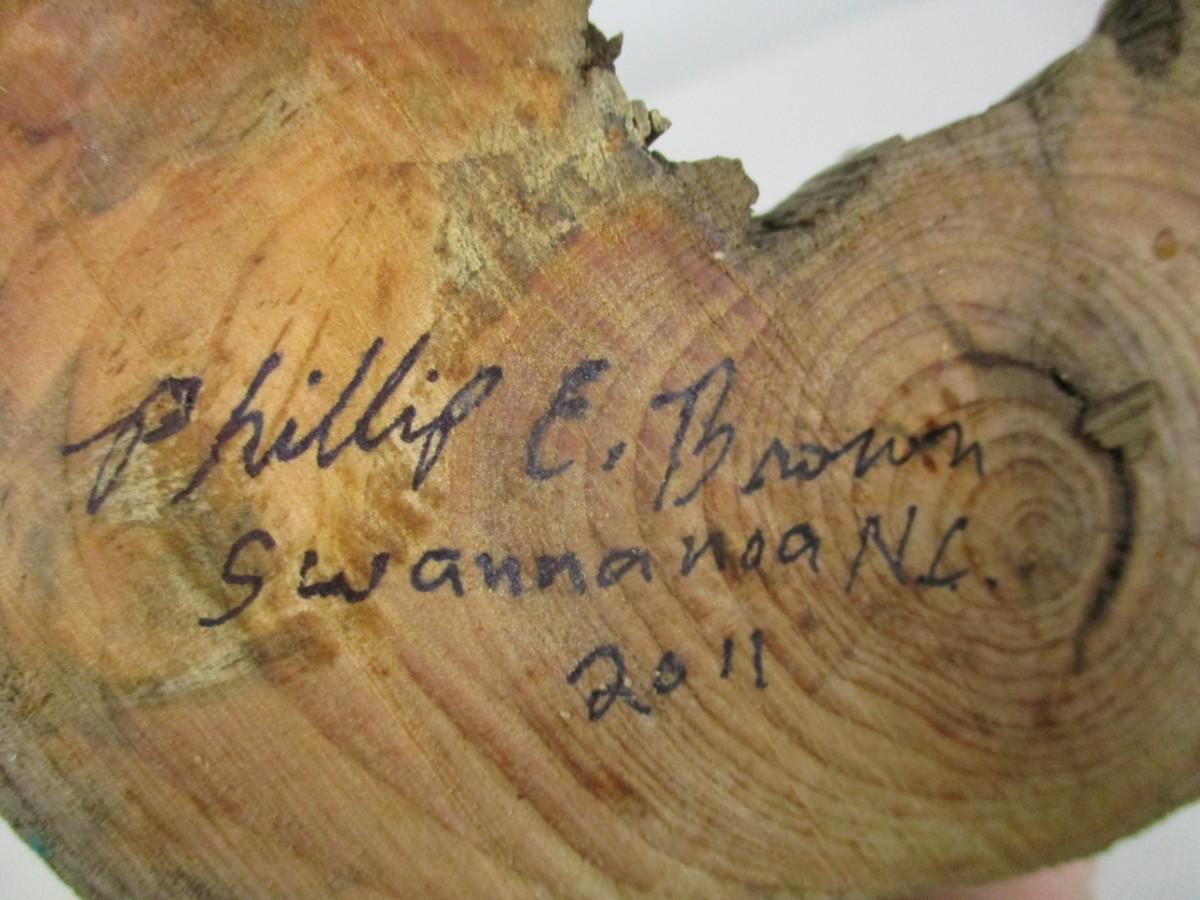 Phillip E. Brown
Swannanoa N.C.
2011